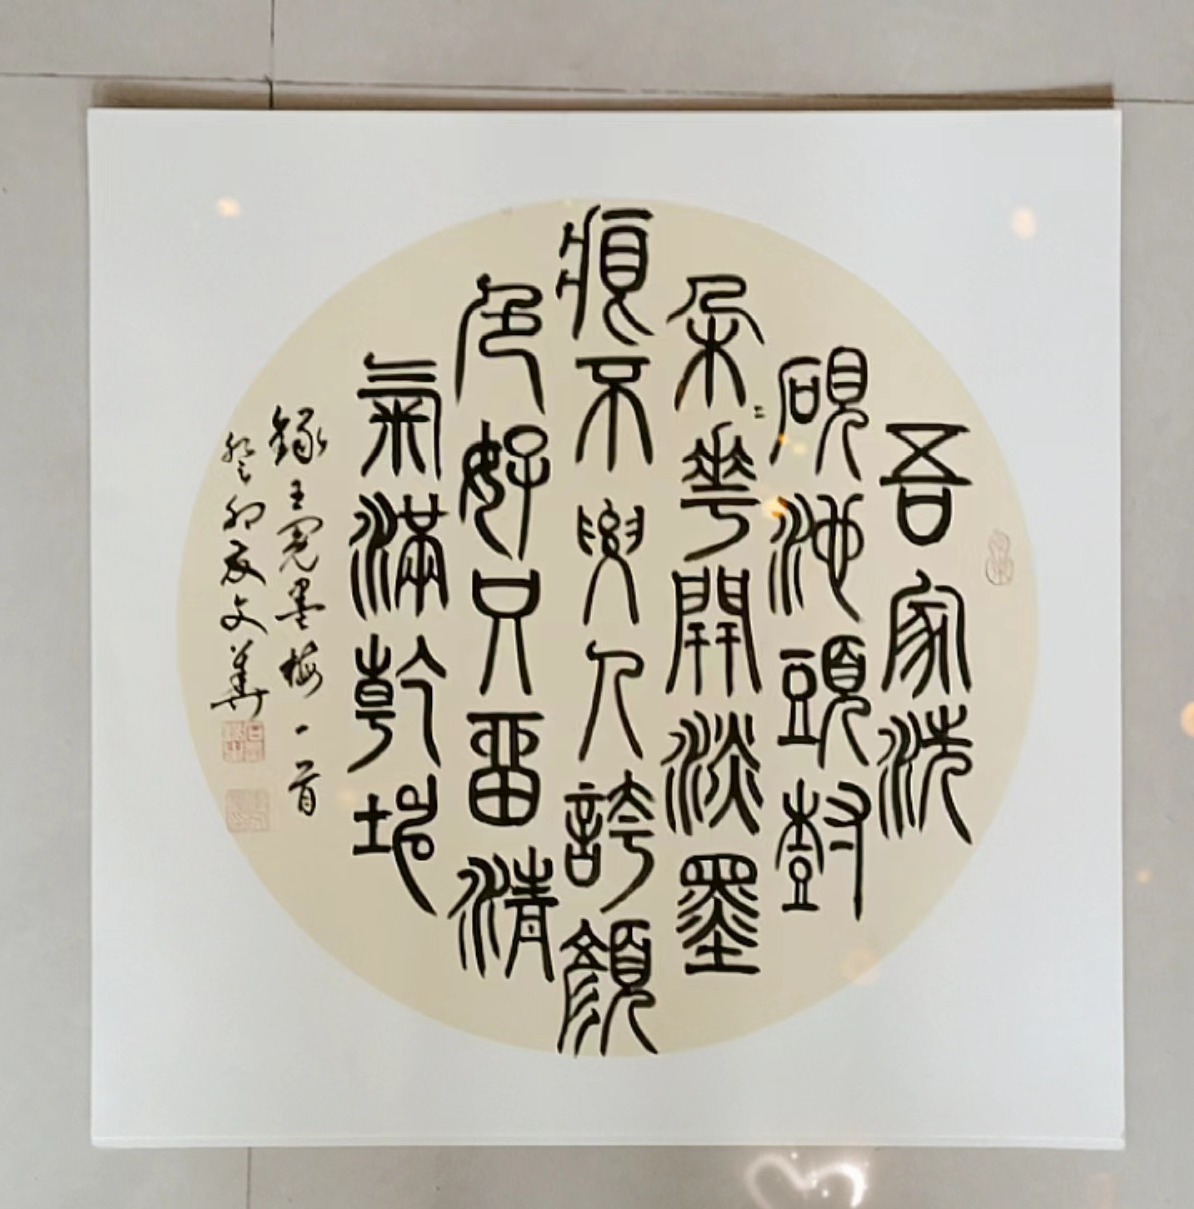 吾家洗
硯池頭樹
朵二華開淡墨
痕不要人誇顏
色好只留清
氣滿乾坤
錄王冕墨梅一首
癸卯夏文華